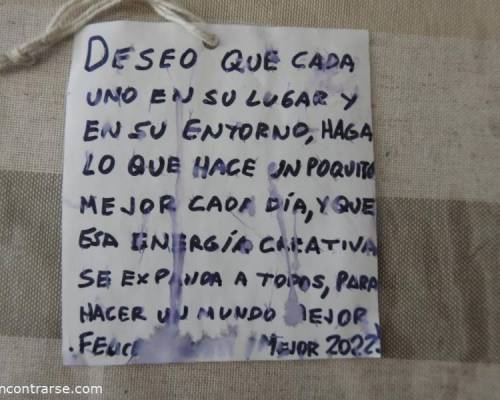 DESEO QUE CADA
UNO EN SU LUGAR Y
EN SU ENTORNO, HAGA
LO QUE HACE UN POQUITO
MEJOR CADA DÍA, Y QUE
ESA ENERGÍA CREATIVA
SE EXPANDA A TODOS, PARA
HACER UN MUNDO MEJOR
MEJOR 2022!
ncontrarse.com